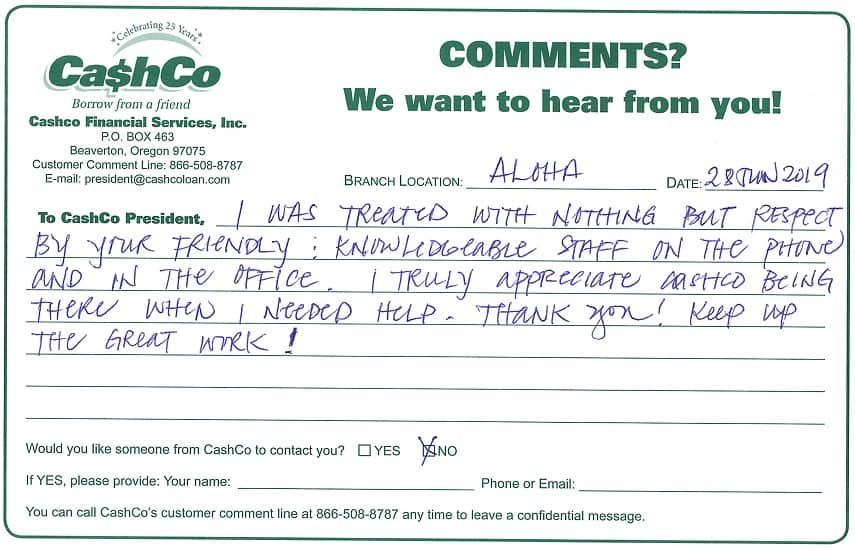 Celebrating 25 Years
Ca$hCo
Borrow from a friend
Cashco Financial Services, Inc.
P.O. BOX 463
Beaverton, Oregon 97075
Customer Comment Line: 866-508-8787
E-mail: president@cashcoloan.com
COMMENTS?
We want to hear from you!
BRANCH LOCATION: ALOHA DATE: 28 JUN 2019
To CashCo President, I WAS TREATED WITH NOTHING BUT RESPECT
BY YOUR FRIENDLY ; KNOWLEDGEABLE STAFF ON THE PHONE
AND IN THE OFFICE. I TRULY APPRECIATE CASHCO BEING
THERE WHEN I NEEDED HELP. THANK YOU! KEEP UP
THE GREAT WORK!
Would you like someone from CashCo to contact you? YES NO
If YES, please provide: Your name: Phone or Email:
You can call CashCo's customer comment line at 866-508-8787 any time to leave a confidential message.